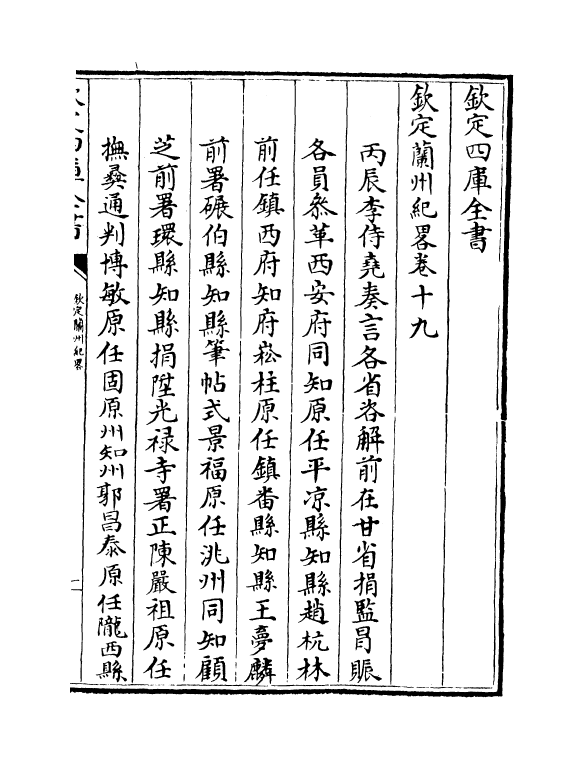 欽定四庫全書
欽定蘭州紀畧卷十九
丙辰李侍堯奏言各省咨解前在甘省捐監冒賑
各員叅革西安府同知原任平凉縣知縣趙杭林
前任鎮西府知府崧柱原任鎮番縣知縣王夢麟
前署碾伯縣知縣筆帖式景福原任洮州同知顧
芝前署環縣知縣捐陞光禄寺署正陳嚴祖原任
撫彜通判博敏原任固原州知州郭昌泰原任隴西縣
欽定四庫全書
欽定蘭州紀畧
一